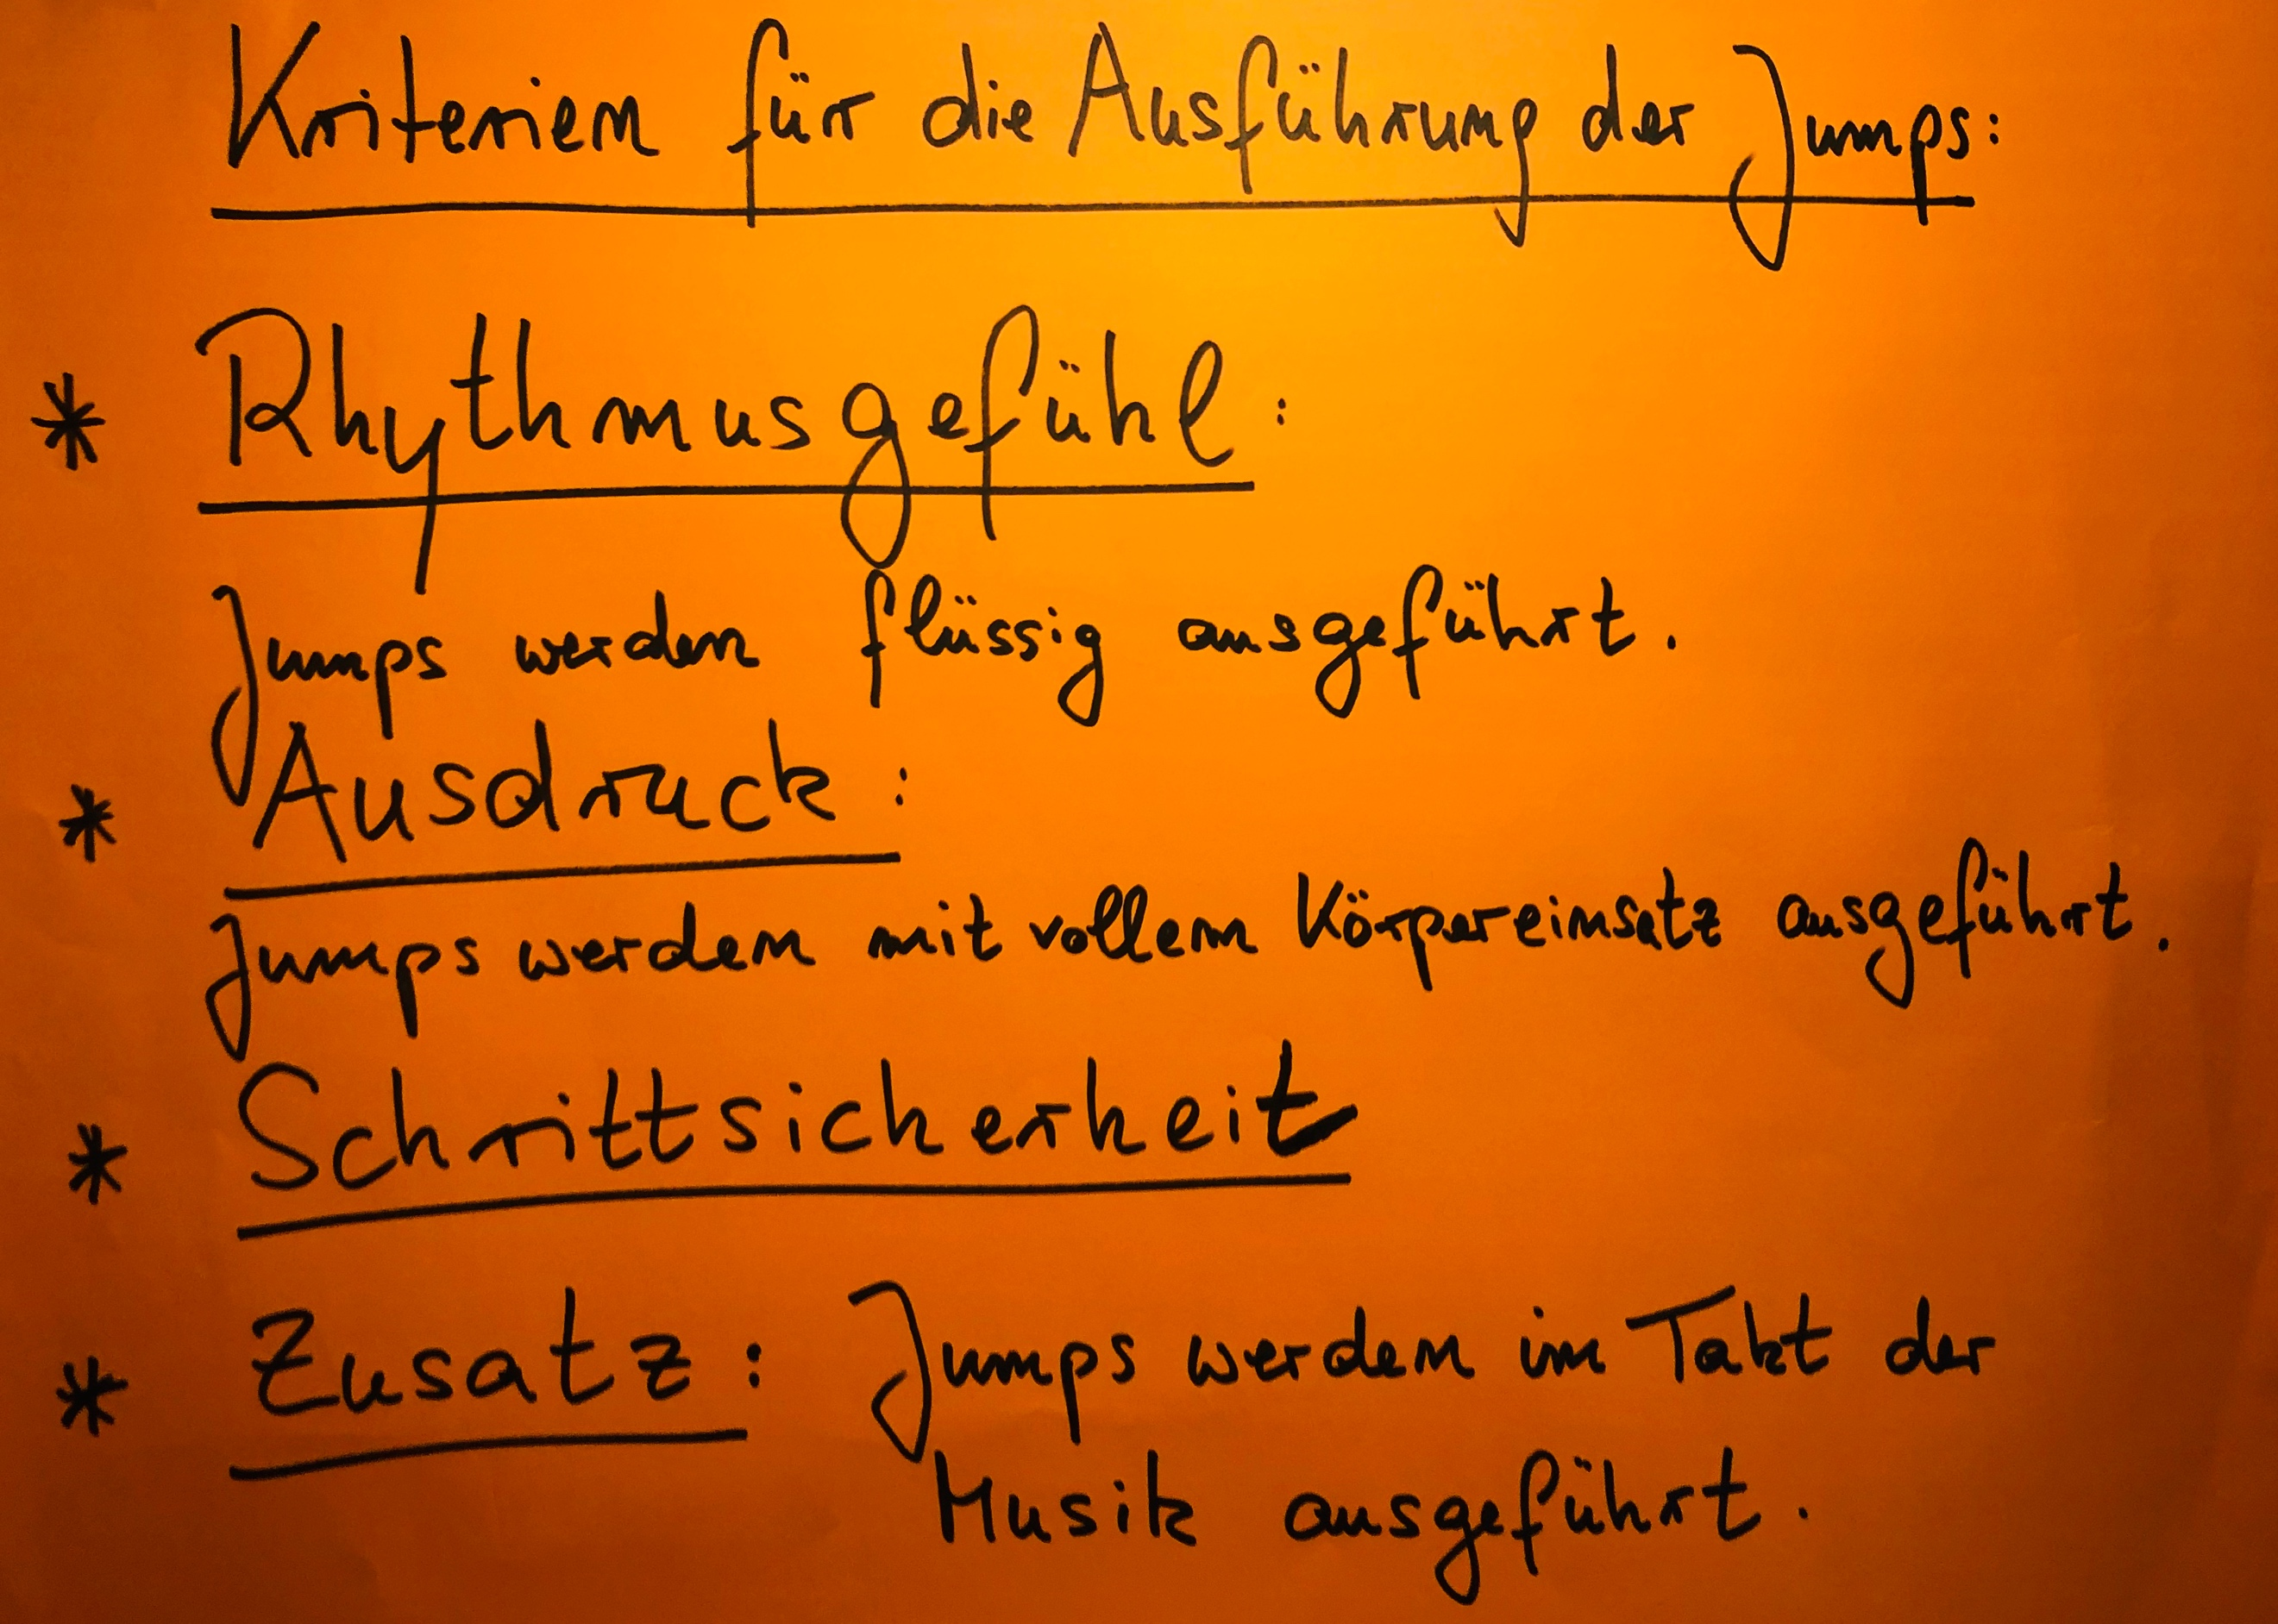 Kriterien für die Ausführung der Jumps:
* Rhythmusgefühl:
Jumps werden flüssig ausgeführt.
* Ausdruck:
Jumps werden mit vollem Körpereinsatz ausgeführt.
* Schrittsicherheit
* Zusatz: Jumps werden im Takt der
Musik ausgeführt.